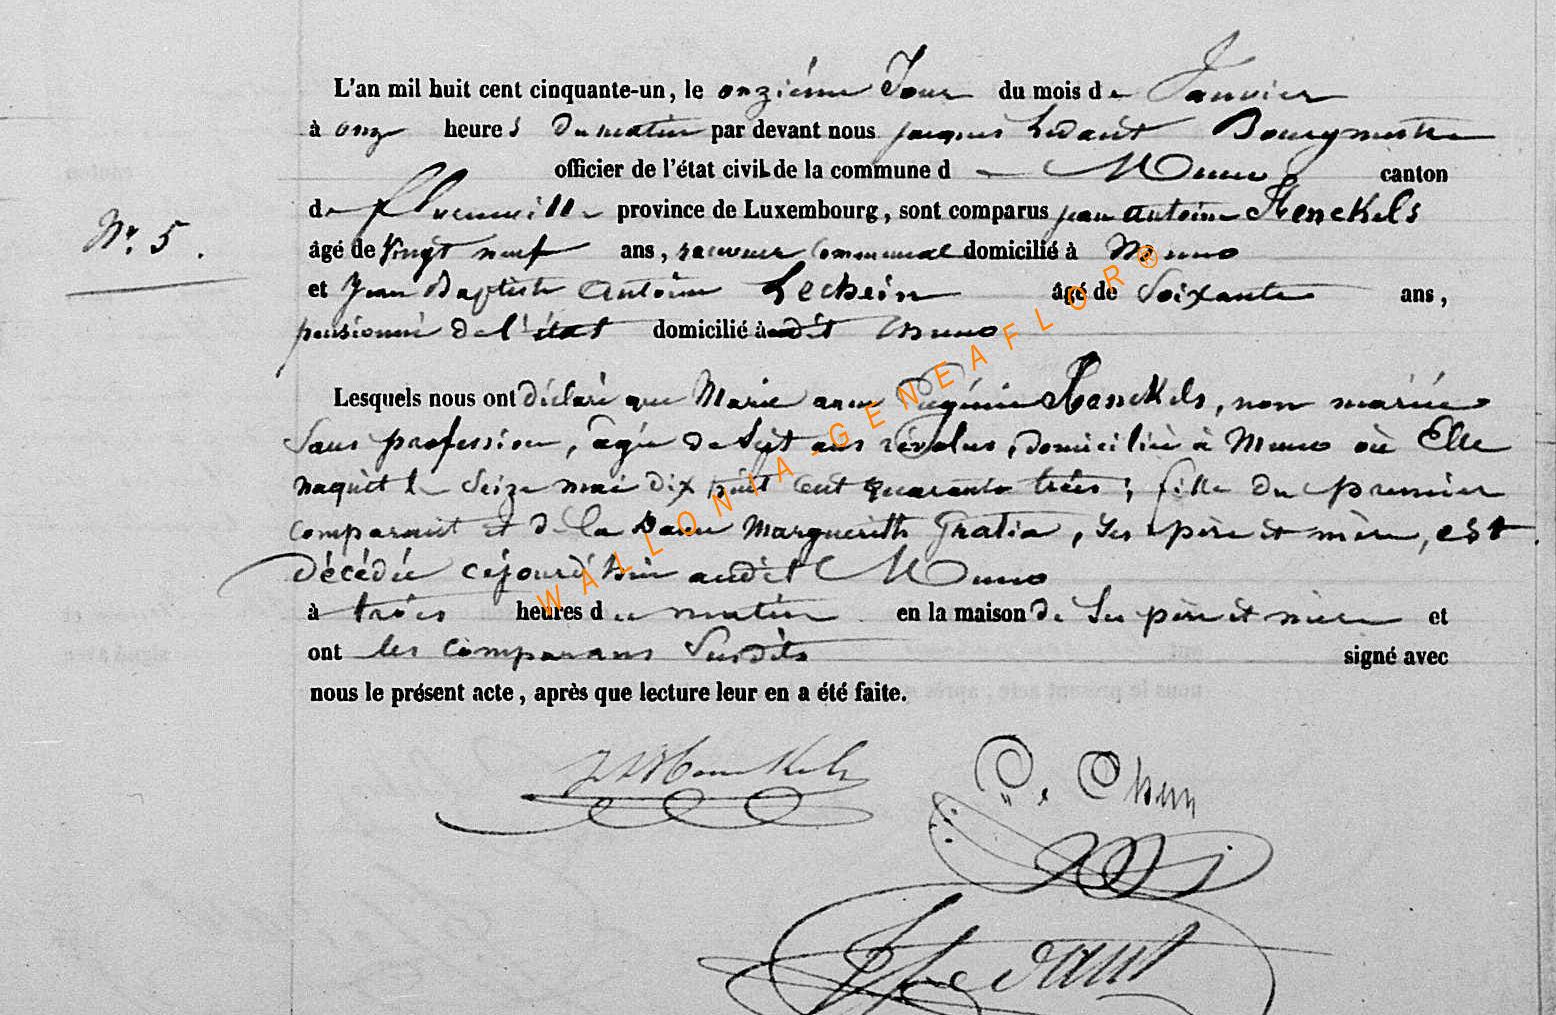 L'an mil huit cent cinquante-un, le onzième Jour du mois de Janvier
à onze heures du matin par devant nous jacques hedant Bourgmestre
officier de l'état civil de la commune d - Muno canton
de florenville province de Luxembourg, sont comparus jean antoine Henckels
Nr. 5.
âgé de vingt neuf ans, receveur communal domicilié à Muno
et Jean Baptiste Antoine Lechein âgé de Soixante ans,
pensionné de l'état domicilié à audit Muno
Lesquels nous ont déclaré que Marie anne Eugénie Henckels, non mariée
Sans profession, âgée de Sept ans révolus, domiciliée à Muno où Elle
naquit le Seize mai dix huit cent quarante trois; fille du premier
comparant et de la Dame Marguerite Gratia, Ses père et mère, est
décédée cejourd'hui audit Muno
à trois heures du matin en la maison de Ses père et mère et
ont les comparans Susdits signé avec
nous le présent acte, après que lecture leur en a été faite.
Henckels
hedant
WALLONIA-GENEAFLOR®